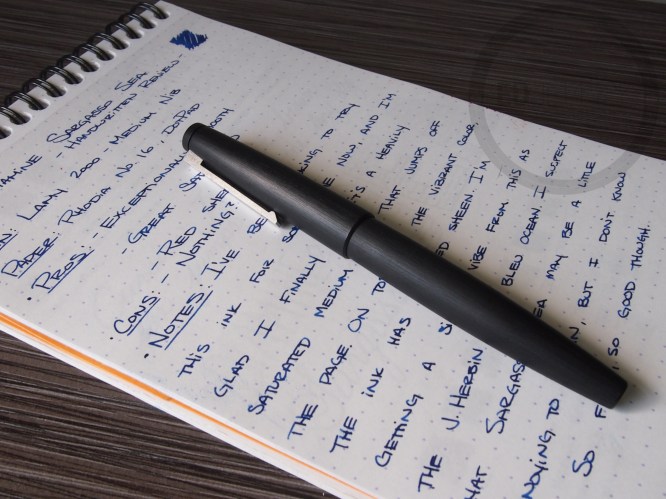 AMINE SARGASSO SEA
- HANDWRITTEN REVIEW -
N: LAMY 2000 - MEDIUM NIB
PAPER: RHODIA No. 16, DOTPAD
PROS: - EXCEPTIONAL OOTH
- GREAT SA
- RED SHE
CONS: - NOTHING?
• NOTES: I'VE BE KING TO TRY
THIS INK FOR SO E NOW, AND I'M
GLAD I FINALLY IT'S A HEAVILY
SATURATED MEDIUM THAT JUMPS OFF
THE PAGE. ON TO THE VIBRANT COLOR
THE INK HAS ED SHEEN. I'M
GETTING A S VIBE FROM THIS AS
THE J. HERBIN BLEU OCEAN. I SUSPECT
HAT SARGASS EA MAY BE A LITTLE
NOYING TO N, BUT I DON'T KNOW
SO F , SO GOOD THOUGH.